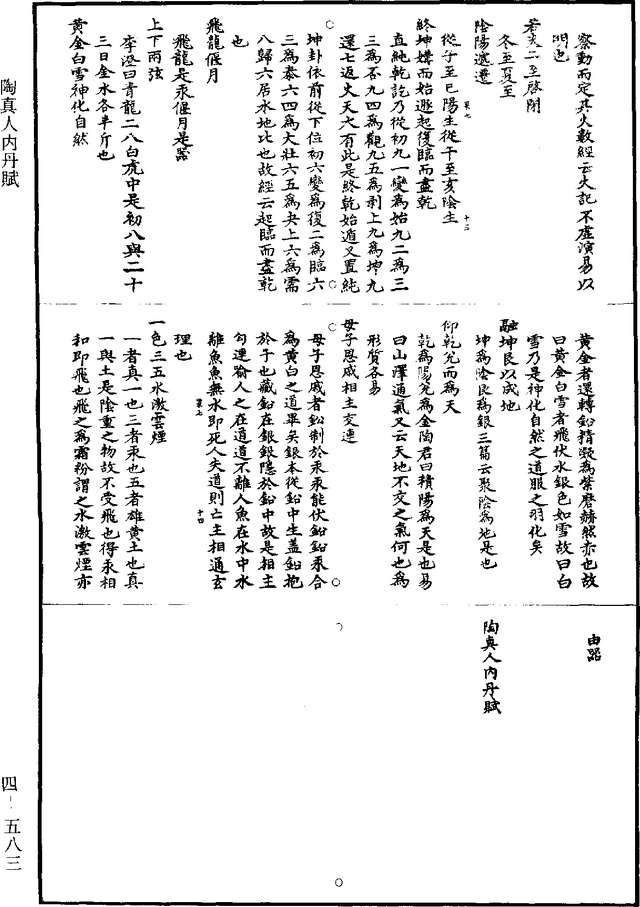 察動而定其火數經云火記不虛演易以
明也
若夫二至啓閉
冬至夏至
陰陽遞遷
從子至巳陽生從午至亥陰生
終坤媾而始遯起復臨而盡乾
直純乾訖乃從初九一變爲始九二爲三
三爲否九四爲觀九五爲剥上九爲坤九
還七返火天大有此是終乾始遁又置純
坤卦依前從下位初六變爲復二爲臨六
三爲泰六四爲大壯六五爲夬上六爲需
八歸六居水地比也故經云起臨而盡乾
也
飛龍偃月
飛龍是汞偃月是器
上下兩弦
李澄曰青龍二八白虎中是初八與二十
三日金水各半斤也
黄金白雪神化自然
黄金者還轉鉛精凝爲紫磨赫然赤也故
曰黄金白雪者飛伏水銀色如雪故曰白
雪乃是神化自然之道服之羽化矣
融坤艮以成地
坤爲陰艮爲銀三篇云聚陰爲地是也
仰乾兊而爲天
乾爲陽兊爲金陶君曰積陽爲天是也易
曰山澤通氣又云天地不交之氣何也爲
形質各易
母子恩戚相主交連
母子恩戚者鈆制於汞汞能伏鉛鉛汞合
爲黄白之道畢矣銀本從鉛中生蓋鉛抱
於子也藏鉛在銀銀隱於鉛中故是相主
勾連喻人之在道道不離人魚在水中水
離魚魚無水即死人失道則亡主相通玄
理也
一色三五水激雲煙
一者真一也三者汞也五者雄黄土也真
一與土是陰重之物故不受飛也得汞相
和即飛也飛之爲霜粉謂之水激雲煙亦
由器
陶真人内丹賦
陶真人内丹賦
四-五八三
第七 十三
第七 十四